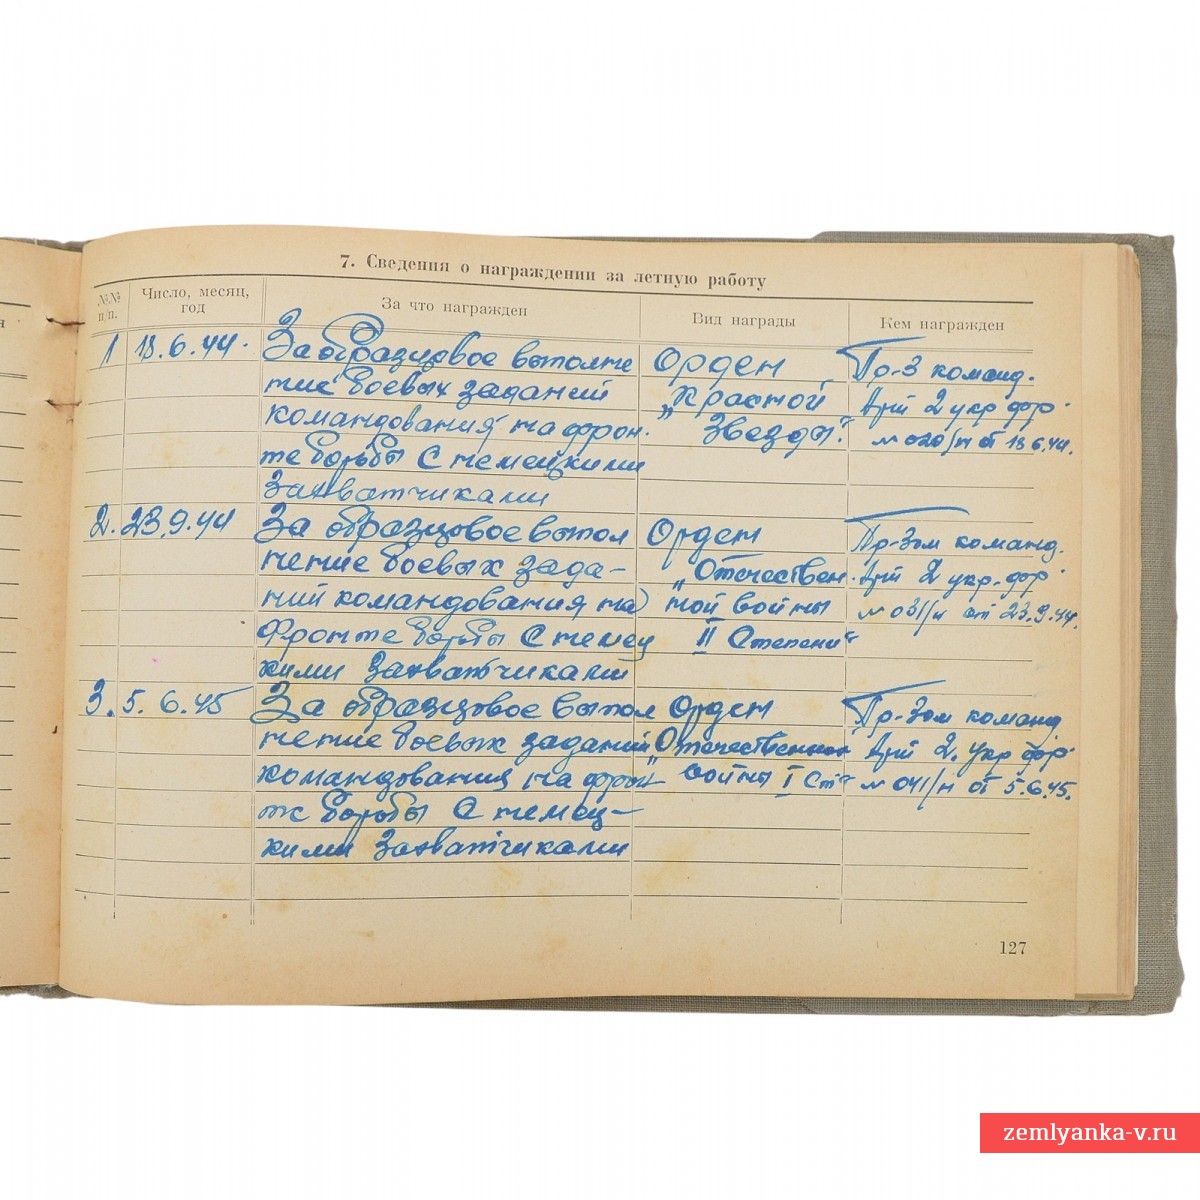 7. Сведения о награждении за летную работу
№№ п/п.
Число, месяц, год
За что награжден
Вид награды
Кем награжден
1 18.6.44. За образцовое выполне Орден Пр-з команд.
ние боевых заданий „Красной Арт 2 укр фр.
командования на фрон. Звезды." № 020/н от 18 6.44.
те борьбы с немецкими
захватчиками
2. 23.9.44 За образцовое выпол Орден Пр-зом команд.
нение боевых зада- „Отечествен. 2 укр-фр
ний командования на ной войны № 031/н от 23.9.44.
фронте борьбы с немец II степени"
кими захватчиками
3. 5. 6.45 За образцовое выпол Орден Пр-зом команд
нение боевых заданий „Отечественной 2. укр фр.
командования на фрон войны I ст" № 041/н от 5.6.45.
те борьбы с немец-
кими захватчиками
127
zemlyanka-v.ru